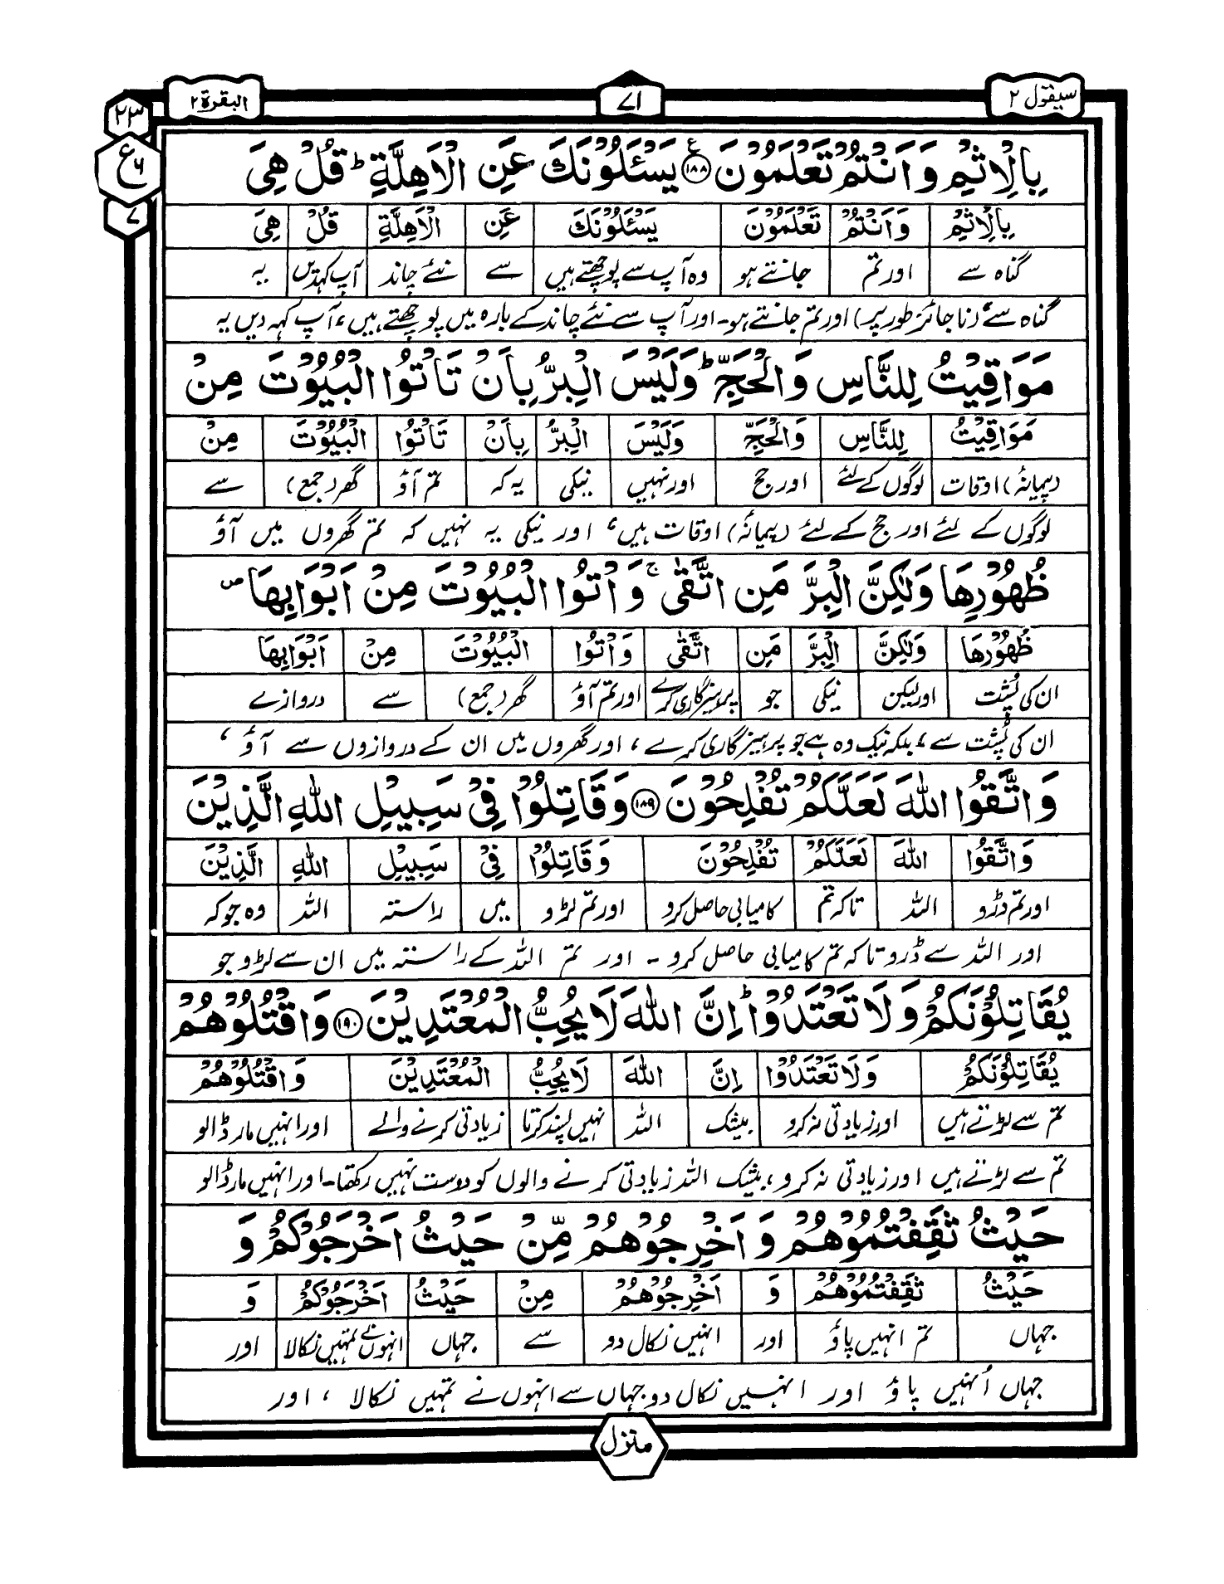 سيقول ٢
٧١
البقرة ٢
٢٣
ع ٦
٧
بِالْاِثْمِ وَاَنْتُمْ تَعْلَمُوْنَ ﴿۱۸۸﴾ ع يَسْـَٔلُوْنَكَ عَنِ الْاَهِلَّةِ ؕ قُلْ هِىَ
بِالْاِثْمِ وَاَنْتُمْ تَعْلَمُوْنَ يَسْـَٔلُوْنَكَ عَنِ الْاَهِلَّةِ قُلْ هِىَ
گناہ سے اور تم جانتے ہو وہ آپ سے پوچھتے ہیں سے نئے چاند آپ کہدیں یہ
گناہ سے (ناجائز طور پر) اور تم جانتے ہو۔ اور آپ سے نئے چاند کے بارہ میں پوچھتے ہیں، آپ کہہ دیں یہ
مَوَاقِيْتُ لِلنَّاسِ وَالْحَجِّ ؕ وَلَيْسَ الْبِرُّ بِاَنْ تَاْتُوا الْبُيُوْتَ مِنْ
مَوَاقِيْتُ لِلنَّاسِ وَالْحَجِّ وَلَيْسَ الْبِرُّ بِاَنْ تَاْتُوا الْبُيُوْتَ مِنْ
(پیمانۂ) اوقات لوگوں کے لئے اور حج اور نہیں نیکی یہ کہ تم آؤ گھر (جمع) سے
لوگوں کے لئے اور حج کے لئے (پیمانۂ) اوقات ہیں، اور نیکی یہ نہیں کہ تم گھروں میں آؤ
ظُهُوْرِهَا وَلٰكِنَّ الْبِرَّ مَنِ اتَّقٰى ۚ وَاْتُوا الْبُيُوْتَ مِنْ اَبْوَابِهَا ص
ظُهُوْرِهَا وَلٰكِنَّ الْبِرَّ مَنِ اتَّقٰى وَاْتُوا الْبُيُوْتَ مِنْ اَبْوَابِهَا
ان کی پُشت اور لیکن نیکی جو پرہیزگاری کرے اور تم آؤ گھر (جمع) سے دروازے
ان کی پُشت سے، بلکہ نیک وہ ہے جو پرہیزگاری کرے، اور گھروں میں ان کے دروازوں سے آؤ،
وَاتَّقُوا اللّٰهَ لَعَلَّكُمْ تُفْلِحُوْنَ ﴿۱۸۹﴾ وَقَاتِلُوْا فِىْ سَبِيْلِ اللّٰهِ الَّذِيْنَ
وَاتَّقُوا اللّٰهَ لَعَلَّكُمْ تُفْلِحُوْنَ وَقَاتِلُوْا فِىْ سَبِيْلِ اللّٰهِ الَّذِيْنَ
اور تم ڈرو اللہ تاکہ تم کامیابی حاصل کرو اور تم لڑو میں راستہ اللہ وہ جو کہ
اور اللہ سے ڈرو تاکہ تم کامیابی حاصل کرو۔ اور تم اللہ کے راستہ میں ان سے لڑو جو
يُقَاتِلُوْنَكُمْ وَلَا تَعْتَدُوْا ؕ اِنَّ اللّٰهَ لَا يُحِبُّ الْمُعْتَدِيْنَ ﴿۱۹۰﴾ وَاقْتُلُوْهُمْ
يُقَاتِلُوْنَكُمْ وَلَا تَعْتَدُوْا اِنَّ اللّٰهَ لَا يُحِبُّ الْمُعْتَدِيْنَ وَاقْتُلُوْهُمْ
تم سے لڑتے ہیں اور زیادتی نہ کرو بیشک اللہ نہیں پسند کرتا زیادتی کرنے والے اور انہیں مار ڈالو
تم سے لڑتے ہیں اور زیادتی نہ کرو، بیشک اللہ زیادتی کرنے والوں کو دوست نہیں رکھتا۔ اور انہیں مار ڈالو
حَيْثُ ثَقِفْتُمُوْهُمْ وَاَخْرِجُوْهُمْ مِّنْ حَيْثُ اَخْرَجُوْكُمْ وَ
حَيْثُ ثَقِفْتُمُوْهُمْ وَ اَخْرِجُوْهُمْ مِنْ حَيْثُ اَخْرَجُوْكُمْ وَ
جہاں تم انہیں پاؤ اور انہیں نکال دو سے جہاں انہوں نے تمہیں نکالا اور
جہاں اُنہیں پاؤ اور انہیں نکال دو جہاں سے انہوں نے تمہیں نکالا، اور
منزل